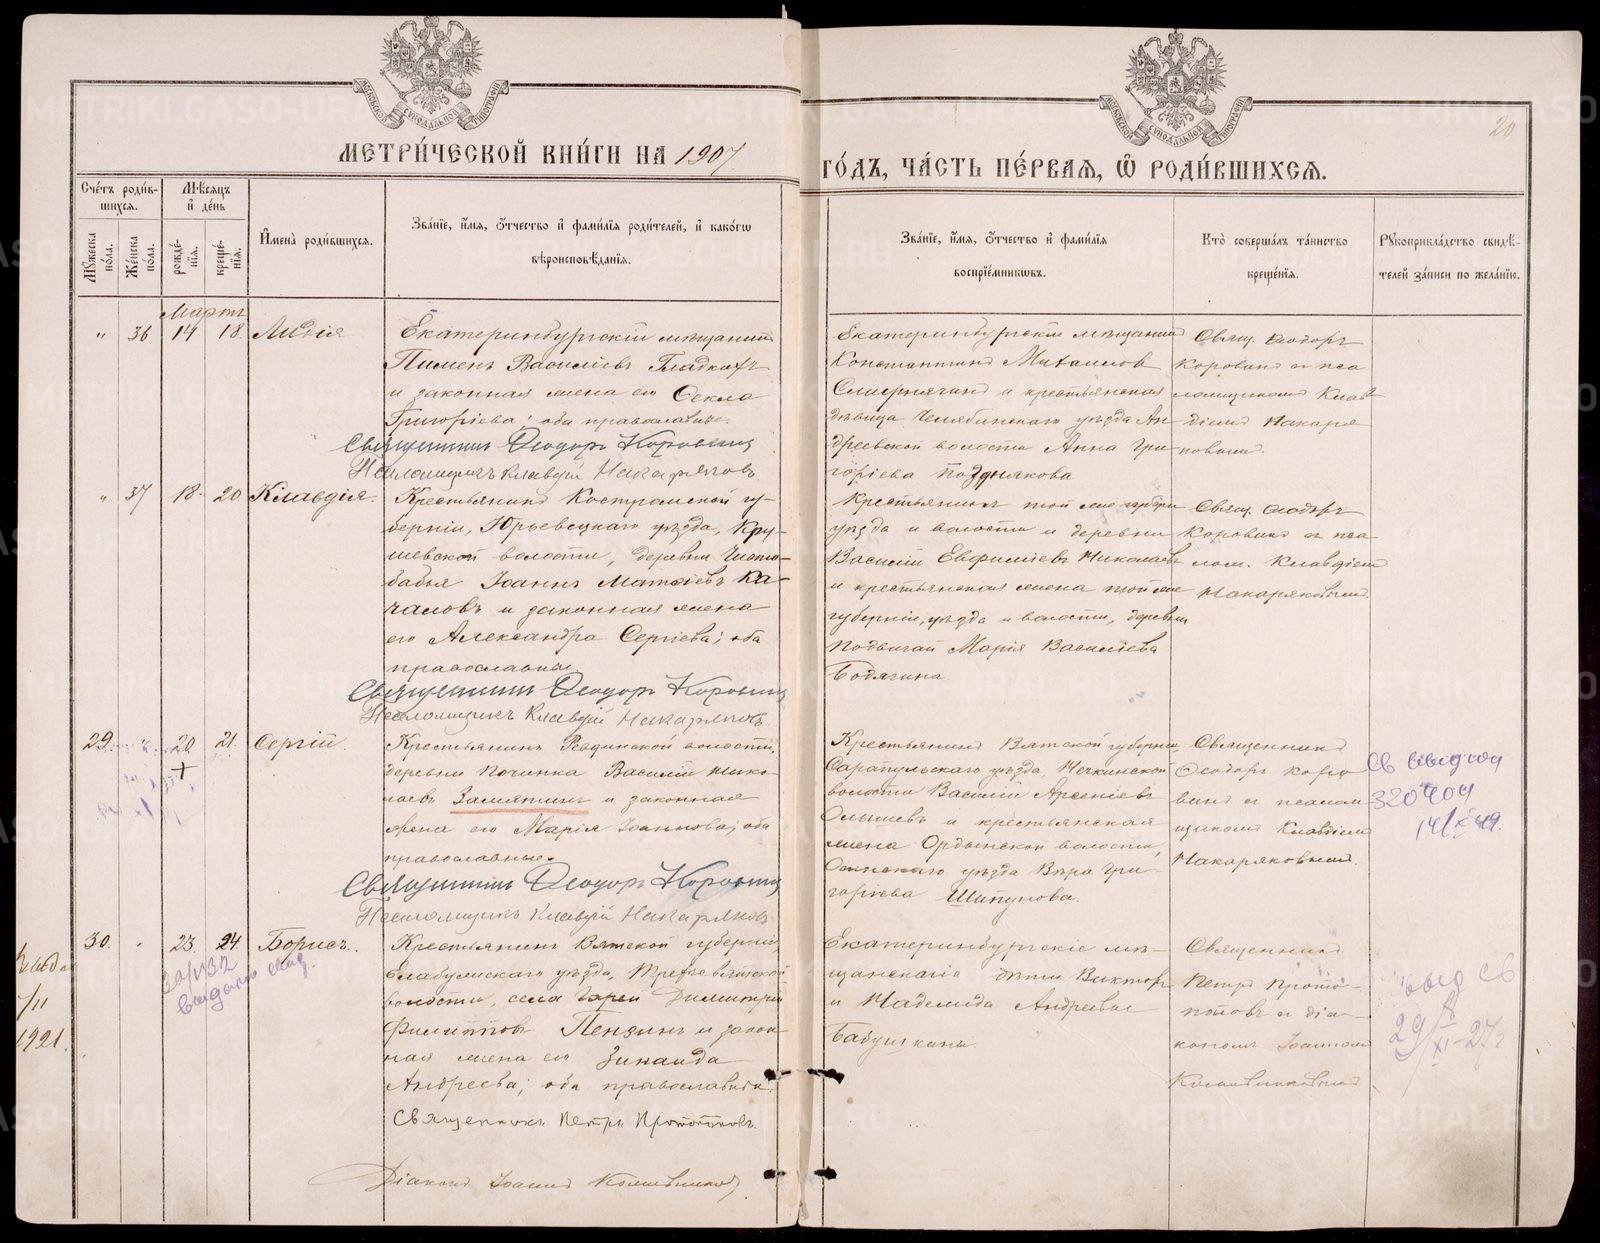 МЕТРИ́ЧЕСКОЙ КНИ́ГИ НА 1907
ГО́ДЪ, ЧА́СТЬ ПЕ́РВАѦ, Ѽ РОДИ́ВШИХСѦ.
20
МОСКОВСКОЙ СѴНОДАЛЬНОЙ ТИПОГРАФІИ
МОСКОВСКОЙ СѴНОДАЛЬНОЙ ТИПОГРАФІИ
Сче́тъ роди́в-
шихсѧ.
Мꙋ́жеска по́ла.
Же́нска по́ла.
Мѣ́сѧцъ
и҆ де́нь
рожде́-
нїѧ.
креще́-
нїѧ.
И҆мена̀ роди́вшихсѧ.
Зва́нїе, и҆́мѧ, ѻ҆́тчество и҆ фами́лїѧ роди́телей, и҆ како́гѡ
вѣроисповѣ́данїѧ.
Зва́нїе, и҆́мѧ, ѻ҆́тчество и҆ фами́лїѧ
воспрїе́мникѡвъ.
Кто̀ соверша́лъ та́инство
креще́нїѧ.
Рꙋкоприкла́дство свидѣ́-
телей за́писи по жела́нїю.
Мартъ
" 36 14 18. Лидія
Екатеринбургскій мѣщанинъ
Пименъ Василіевъ Гладкихъ
и законная жена его Ѳекла
Григоріева; оба православные.
Священникъ Ѳеодоръ Коровинъ
Псаломщикъ Клавдій Макаряковъ
Екатеринбургскій мѣщанинъ
Константинъ Михаиловъ
и крестьянская
дѣвица Челябинскаго уѣзда Ан-
дреевской волости Анна Гри-
горіева Позднякова
Свящ. Ѳеодоръ
Коровинъ съ пса-
ломщикомъ Клав-
діемъ Макаря-
ковымъ.
" 37 18. 20 Клавдія.
Крестьянинъ Костромской гу-
берніи, Юрьевецкаго уѣзда,
волости, деревни
Іоаннъ Матѳіевъ Ка-
чаловъ и законная жена
его Александра Сергіева; оба
православные.
Священникъ Ѳеодоръ Коровинъ
Псаломщикъ Клавдій Макаряковъ
Крестьянинъ той же губерніи
уѣзда и волости и деревни
Василій Евфиміевъ Николаевъ
и крестьянская жена той же
губерніи, уѣзда и волости, деревни
Марія Василіева
Бодягина
Свящ. Ѳеодоръ
Коровинъ съ пса-
лом. Клавдіемъ
Макаряковымъ.
29. " 20 21. Сергій.
+
Крестьянинъ Ревдинской волости,
деревни Починка Василій Нико-
лаевъ Замятинъ и законная
жена его Марія Іоаннова; оба
православные.
Священникъ Ѳеодоръ Коровинъ
Псаломщикъ Клавдій Макаряковъ
Крестьянинъ Вятской губерніи
Сарапульскаго уѣзда, Нечкинской
волости Василій Арсеніевъ
и крестьянская
жена Ординской волости,
Осинскаго уѣзда Вѣра Гри-
горіева Шипунова.
Священникъ
Ѳеодоръ Коро-
винъ съ псалом-
щикомъ Клавдіемъ
Макаряковымъ.
св выдано
320404
14/X 49.
30. " 23 24 Борисъ.
20/V32
выдано свид.
/II
1921.
Крестьянинъ Вятской губерніи,
Елабужскаго уѣзда,
волости, села Димитрій
Филипповъ Пензинъ и закон-
ная жена его Зинаида
Андреева; оба православные.
Священникъ Петръ Протопоповъ.
Діаконъ Іоаннъ
Екатеринбургскіе мѣ-
щанскіе дѣти Викторъ
и Надежда Андреевы
Бабушкины.
Священникъ
Петръ Протопо-
повъ съ діа-
кономъ Іоанномъ
выд св
29/XI-27г
METRIKI.GASO-URAL.RU